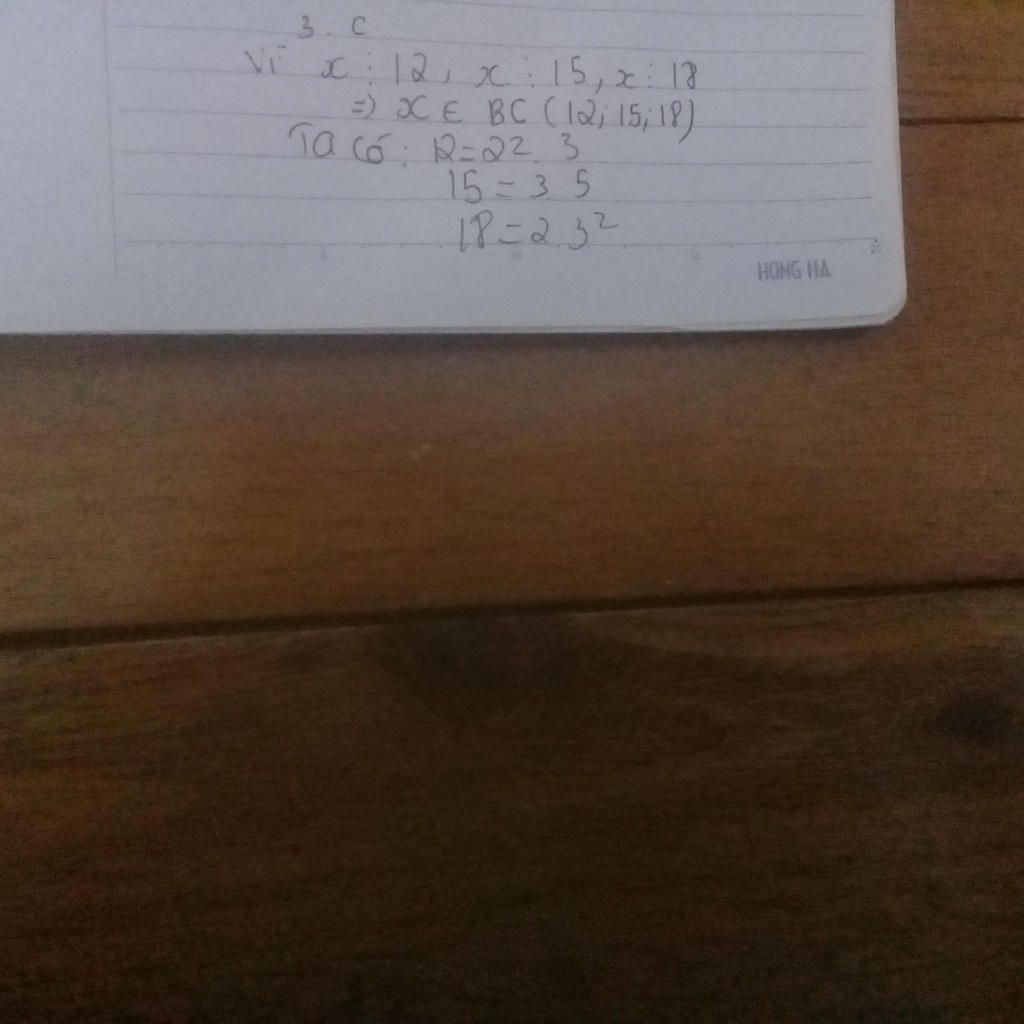 3. C
Vì x ⋮ 12, x ⋮ 15, x ⋮ 18
=> x ∈ BC (12; 15; 18)
Ta có: 12 = 2². 3
15 = 3. 5
18 = 2. 3²
5 10 15 20
HONG HA